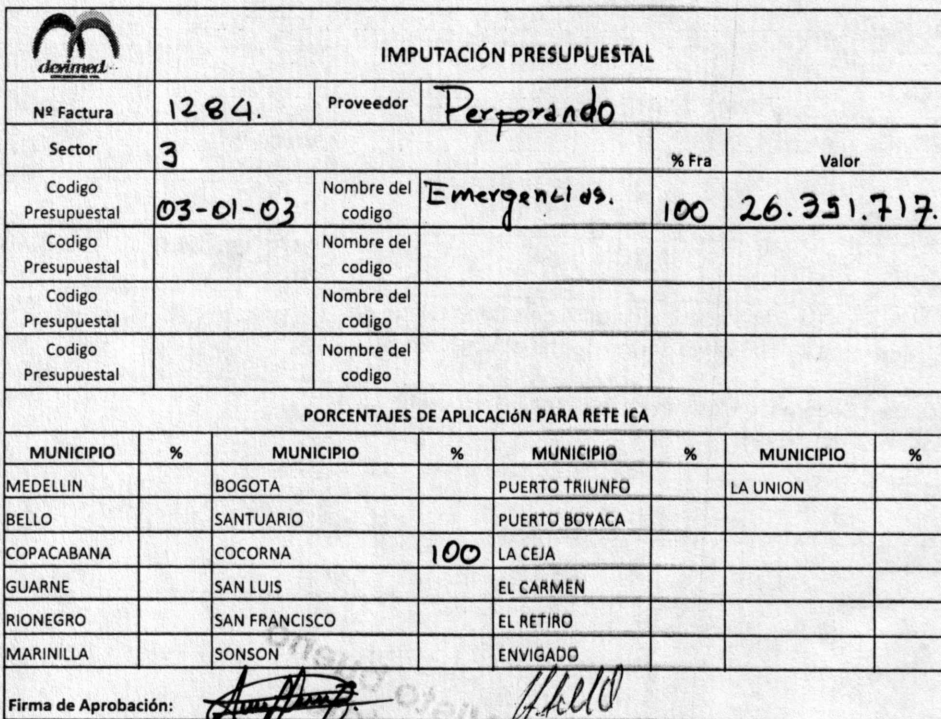 devimed
IMPUTACIÓN PRESUPUESTAL
Nº Factura 1284. Proveedor Perforando
Sector 3 % Fra Valor
Codigo Presupuestal 03-01-03 Nombre del codigo Emergencias. 100 26.351.717.
Codigo Presupuestal Nombre del codigo
Codigo Presupuestal Nombre del codigo
Codigo Presupuestal Nombre del codigo
PORCENTAJES DE APLICACIÓN PARA RETE ICA
MUNICIPIO % MUNICIPIO % MUNICIPIO % MUNICIPIO %
MEDELLIN BOGOTA PUERTO TRIUNFO LA UNION
BELLO SANTUARIO PUERTO BOYACA
COPACABANA COCORNA 100 LA CEJA
GUARNE SAN LUIS EL CARMEN
RIONEGRO SAN FRANCISCO EL RETIRO
MARINILLA SONSON ENVIGADO
Firma de Aprobación:
Visto bueno